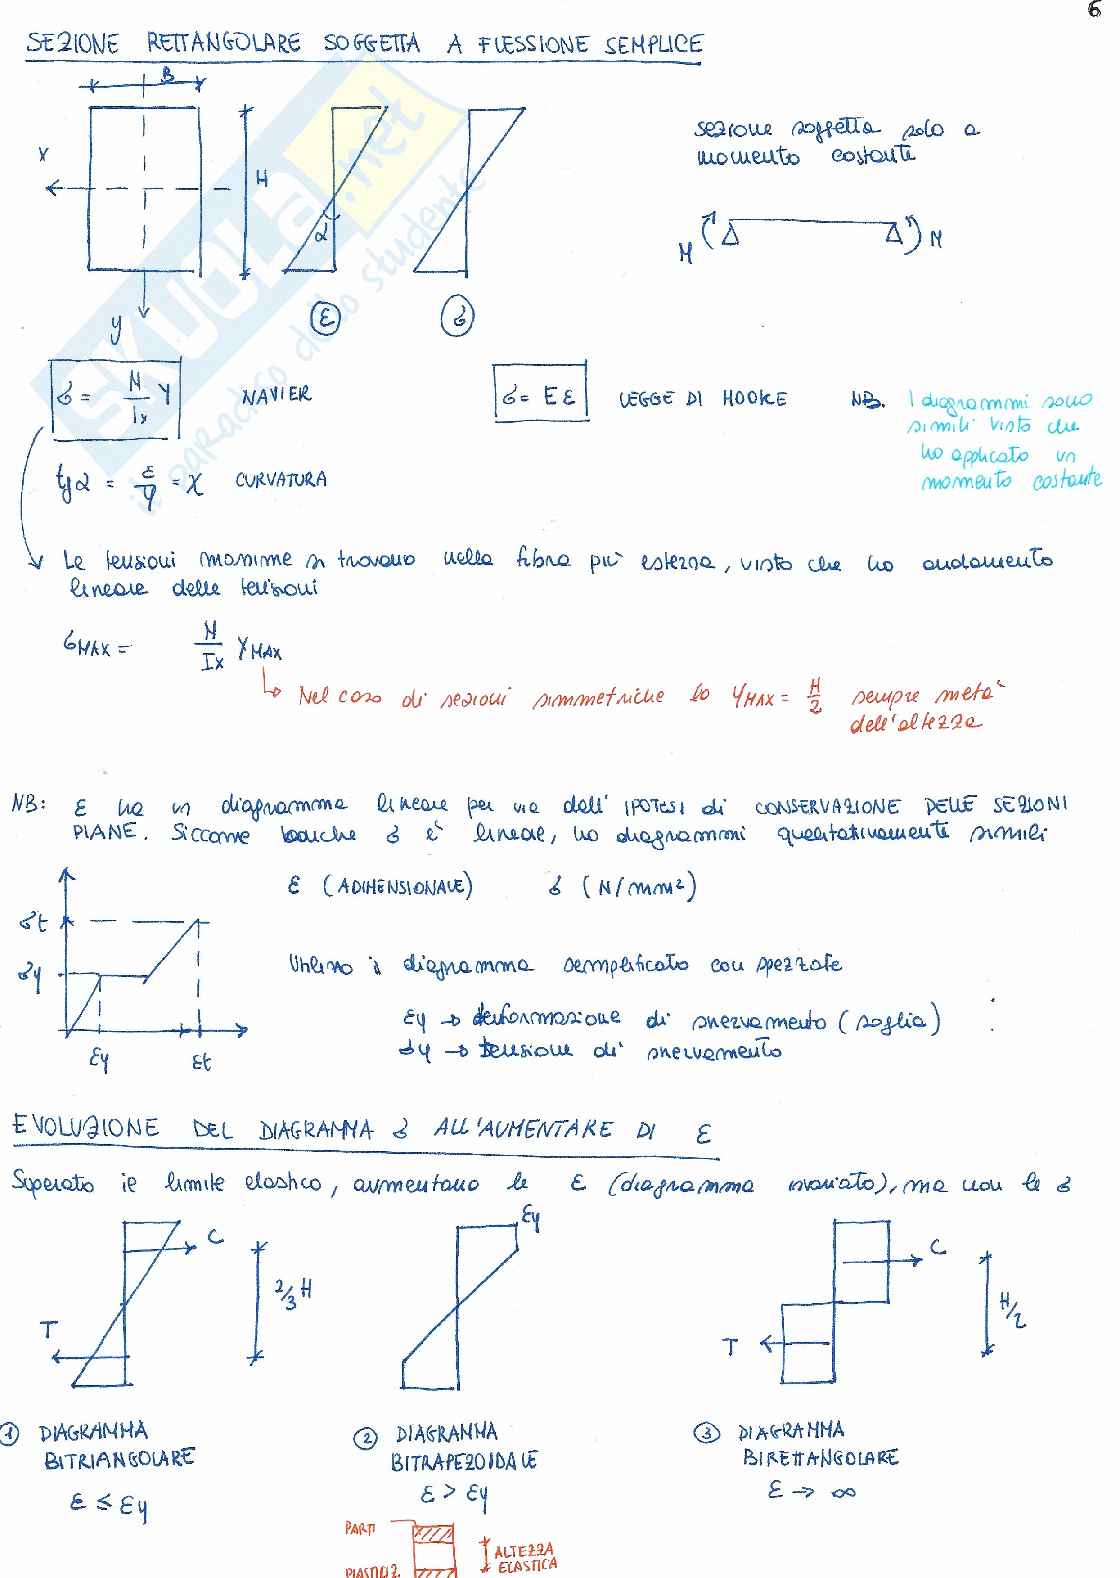 6
SEZIONE RETTANGOLARE SOGGETTA A FLESSIONE SEMPLICE
B
X
H
α
y
ε
σ
sezione soggetta solo a
momento costante
M M
σ = M/Ix y NAVIER
σ = E ε LEGGE DI HOOKE
NB. I diagrammi sono
simili visto che
ho applicato un
momento costante
tgα = ε/y = χ CURVATURA
Le tensioni massime si trovano nella fibra più esterna, visto che ho andamento
lineare delle tensioni
σMAX = M/Ix yMAX
Nel caso di sezioni simmetriche lo yMAX = H/2 sempre metà
dell'altezza
NB: ε ha un diagramma lineare per via dell' IPOTESI di CONSERVAZIONE DELLE SEZIONI
PIANE. Siccome anche σ è lineare, ho diagrammi qualitativamente simili
ε (ADIMENSIONALE) σ (N/mm²)
σt
σy
εy εt
Utilizzo il diagramma semplificato con spezzate
εy → deformazione di snervamento (soglia)
σy → tensione di snervamento
EVOLUZIONE DEL DIAGRAMMA σ ALL'AUMENTARE DI ε
Superato il limite elastico, aumentano le ε (diagramma invariato), ma non le σ
C
T
2/3 H
εy
C
T
H/2
1 DIAGRAMMA
BITRIANGOLARE
ε ≤ εy
2 DIAGRAMMA
BITRAPEZOIDALE
ε > εy
3 DIAGRAMMA
BIRETTANGOLARE
ε → ∞
PARTI
PLASTICIZ.
ALTEZZA
ELASTICA
SKUOLA.net
il paradiso dello studente